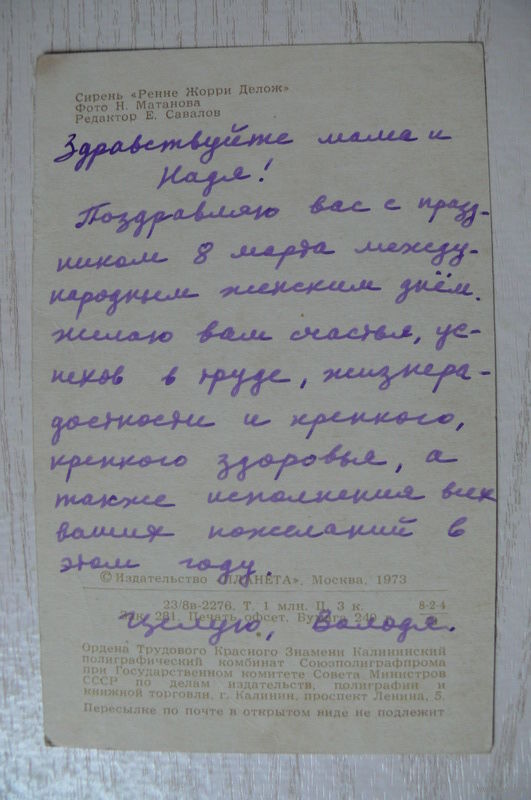 Сирень «Ренне Жорри Делож»
Фото Н. Матанова
Редактор Е. Савалов
Здравствуйте мама и
Надя!
Поздравляю вас с празд-
ником 8 марта между-
народным женским днём.
желаю вам счастья, ус-
пехов в труде, жизнера-
достности и крепкого,
крепкого здоровья, а
также исполнения всех
ваших пожеланий в
этом году.
© Издательство «ПЛАНЕТА», Москва, 1973
23/8в-2276. Т. 1 млн. П. 3 к. 8-2-4
Зак. 281. Печать офсет. Бумага 240
Целую, Володя.
Ордена Трудового Красного Знамени Калининский
полиграфический комбинат Союзполиграфпрома
при Государственном комитете Совета Министров
СССР по делам издательств, полиграфии и
книжной торговли, г. Калинин, проспект Ленина, 5.
Пересылке по почте в открытом виде не подлежит